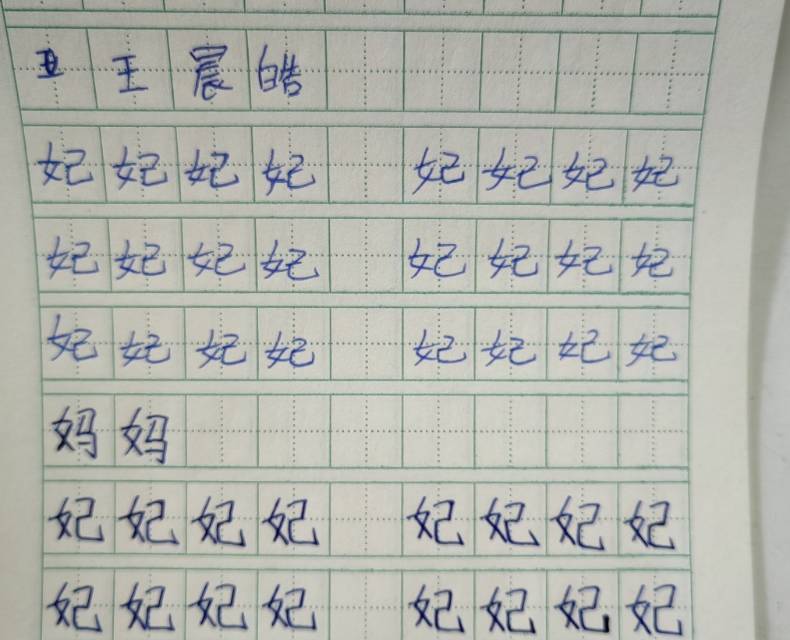 王晨皓
妃妃妃妃 妃妃妃妃
妃妃妃妃 妃妃妃妃
妃妃妃妃 妃妃妃妃
妈妈
妃妃妃妃 妃妃妃妃
妃妃妃妃 妃妃妃妃